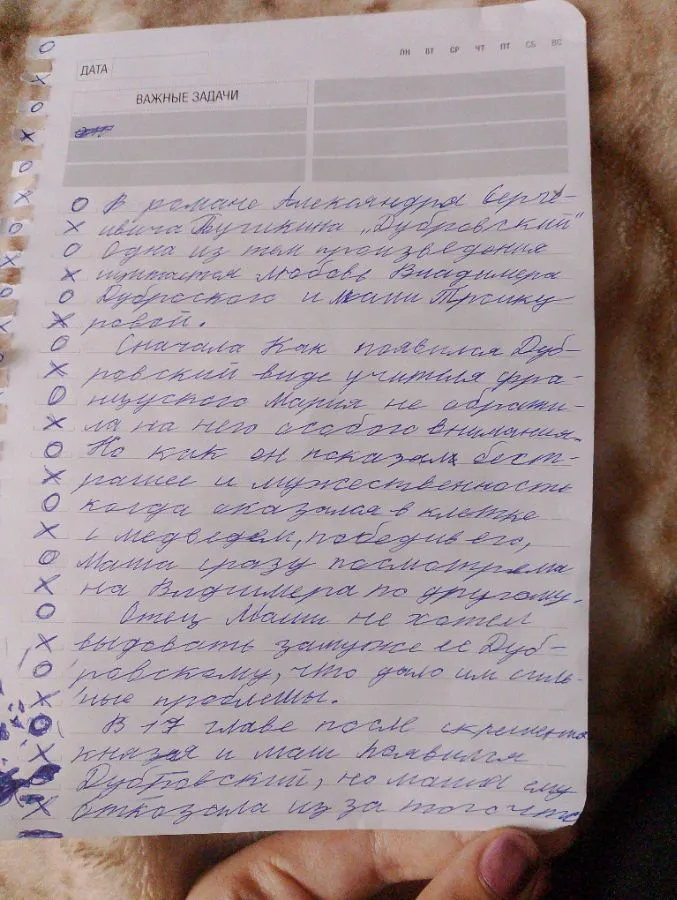 ПН ВТ СР ЧТ ПТ СБ ВС
ДАТА
ВАЖНЫЕ ЗАДАЧИ
В романе Александра Серге-
евича Пушкина „Дубровский"
Одна из тем произведения
щитается любовь Владимера
Дубровского и Маши Троику
ровой.
Сначала Как появился Дуб-
ровский виде учителя фра-
нцуского Мария не обрати-
ла на него особого внимания.
Но как он показал бест-
рашее и мужественность
когда оказался в клетке
с медведем, победив его,
Маша сразу посмотрела
на Вл­димера по другому.
Отец Маши не хотел
выдовать замуже её Дуб-
ровскому, что дало им силь-
ные проблемы.
В 17 главе после
князя и маши появился
Дубровский, но маша ему
отказала из за того что